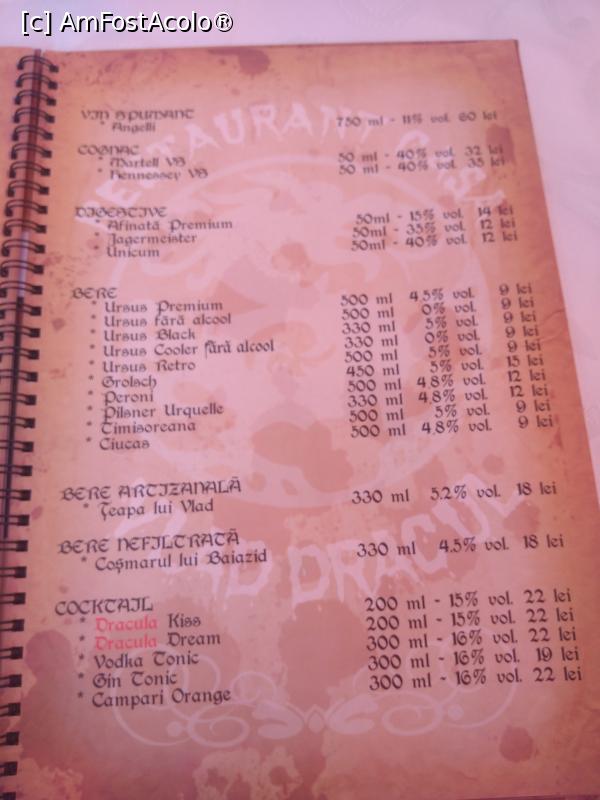 [c] AmFostAcolo®
VIN SPUMANT
* Angelli 750 ml - 11% vol. 60 lei
COGNAC
* Martell VS 50 ml - 40% vol. 32 lei
* Hennessey VS 50 ml - 40% vol. 35 lei
DIGESTIVE
* Afinată Premium 50ml - 15% vol. 14 lei
* Jagermeister 50ml - 35% vol. 12 lei
* Unicum 50ml - 40% vol. 12 lei
BERE
* Ursus Premium 500 ml 4.5% vol. 9 lei
* Ursus fără alcool 500 ml 0% vol. 9 lei
* Ursus Black 330 ml 5% vol. 9 lei
* Ursus Cooler fără alcool 330 ml 0% vol. 9 lei
* Ursus Retro 500 ml 5% vol. 9 lei
* Grolsch 450 ml 5% vol. 15 lei
* Peroni 500 ml 4.8% vol. 12 lei
* Pilsner Urquelle 330 ml 4.8% vol. 12 lei
* Timisoreana 500 ml 5% vol. 9 lei
* Ciucas 500 ml 4.8% vol. 9 lei
BERE ARTIZANALĂ
* Țeapa lui Vlad 330 ml 5.2% vol. 18 lei
BERE NEFILTRATĂ
* Coșmarul lui Baiazid 330 ml 4.5% vol. 18 lei
COCKTAIL
* Dracula Kiss 200 ml - 15% vol. 22 lei
* Dracula Dream 200 ml - 15% vol. 22 lei
* Vodka Tonic 300 ml - 16% vol. 22 lei
* Gin Tonic 300 ml - 16% vol. 19 lei
* Campari Orange 300 ml - 16% vol. 22 lei